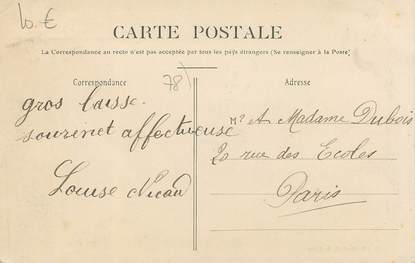 10 €
CARTE POSTALE
La Correspondance au recto n'est pas acceptée par tous les pays étrangers (Se renseigner à la Poste)
78
Correspondance
Adresse
gros baise.
sourinet affectueuse
Louise
Mr et Madame Dubois
20 rue des Ecoles
Paris